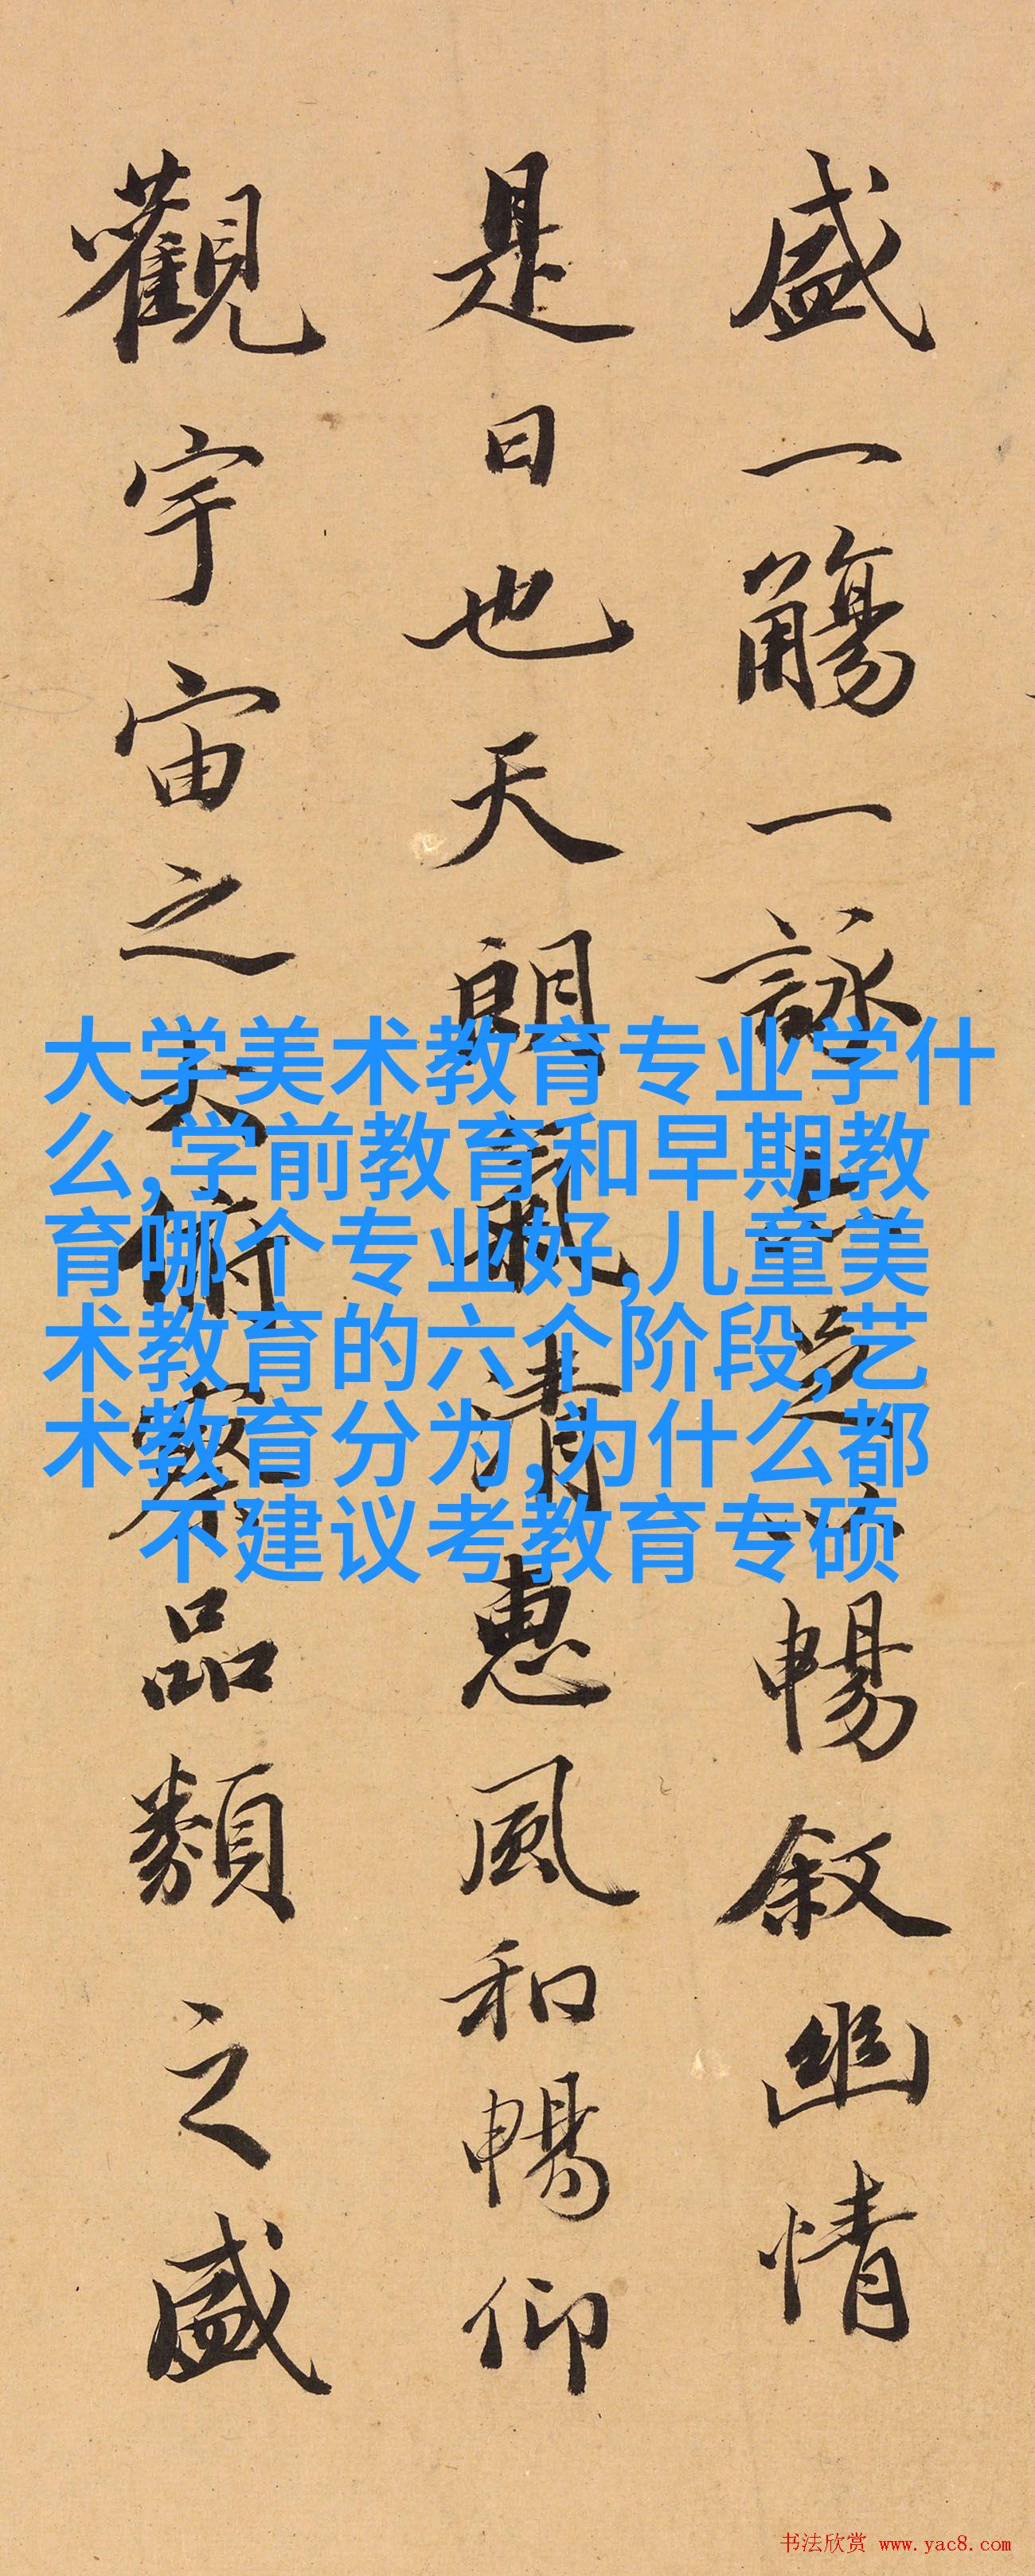 盛一觴一詠亦足以暢叙幽情
是日也天朗氣清惠風和暢仰
觀宇宙之大俯察品類之盛
大学美术教育专业学什
么,学前教育和早期教
育哪个专业好,儿童美
术教育的六个阶段,艺
术教育分为,为什么都
不建议考教育专硕
书法欣赏 www.yac8.com